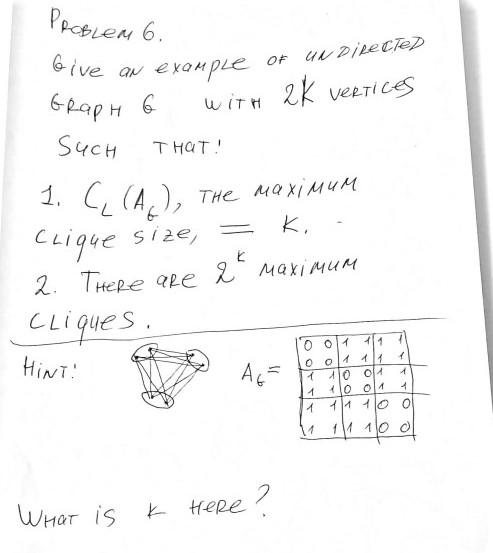 PROBLEM 6.
Give an example of undirected
Graph G with 2K vertices
Such that!
1. C_L(A_G), the maximum
clique size, = K.
2. There are 2^k maximum
cliques.
Hint!
A_G =
0 0 1 1 1 1
0 0 1 1 1 1
1 1 0 0 1 1
1 1 0 0 1 1
1 1 1 1 0 0
1 1 1 1 0 0
What is k here?